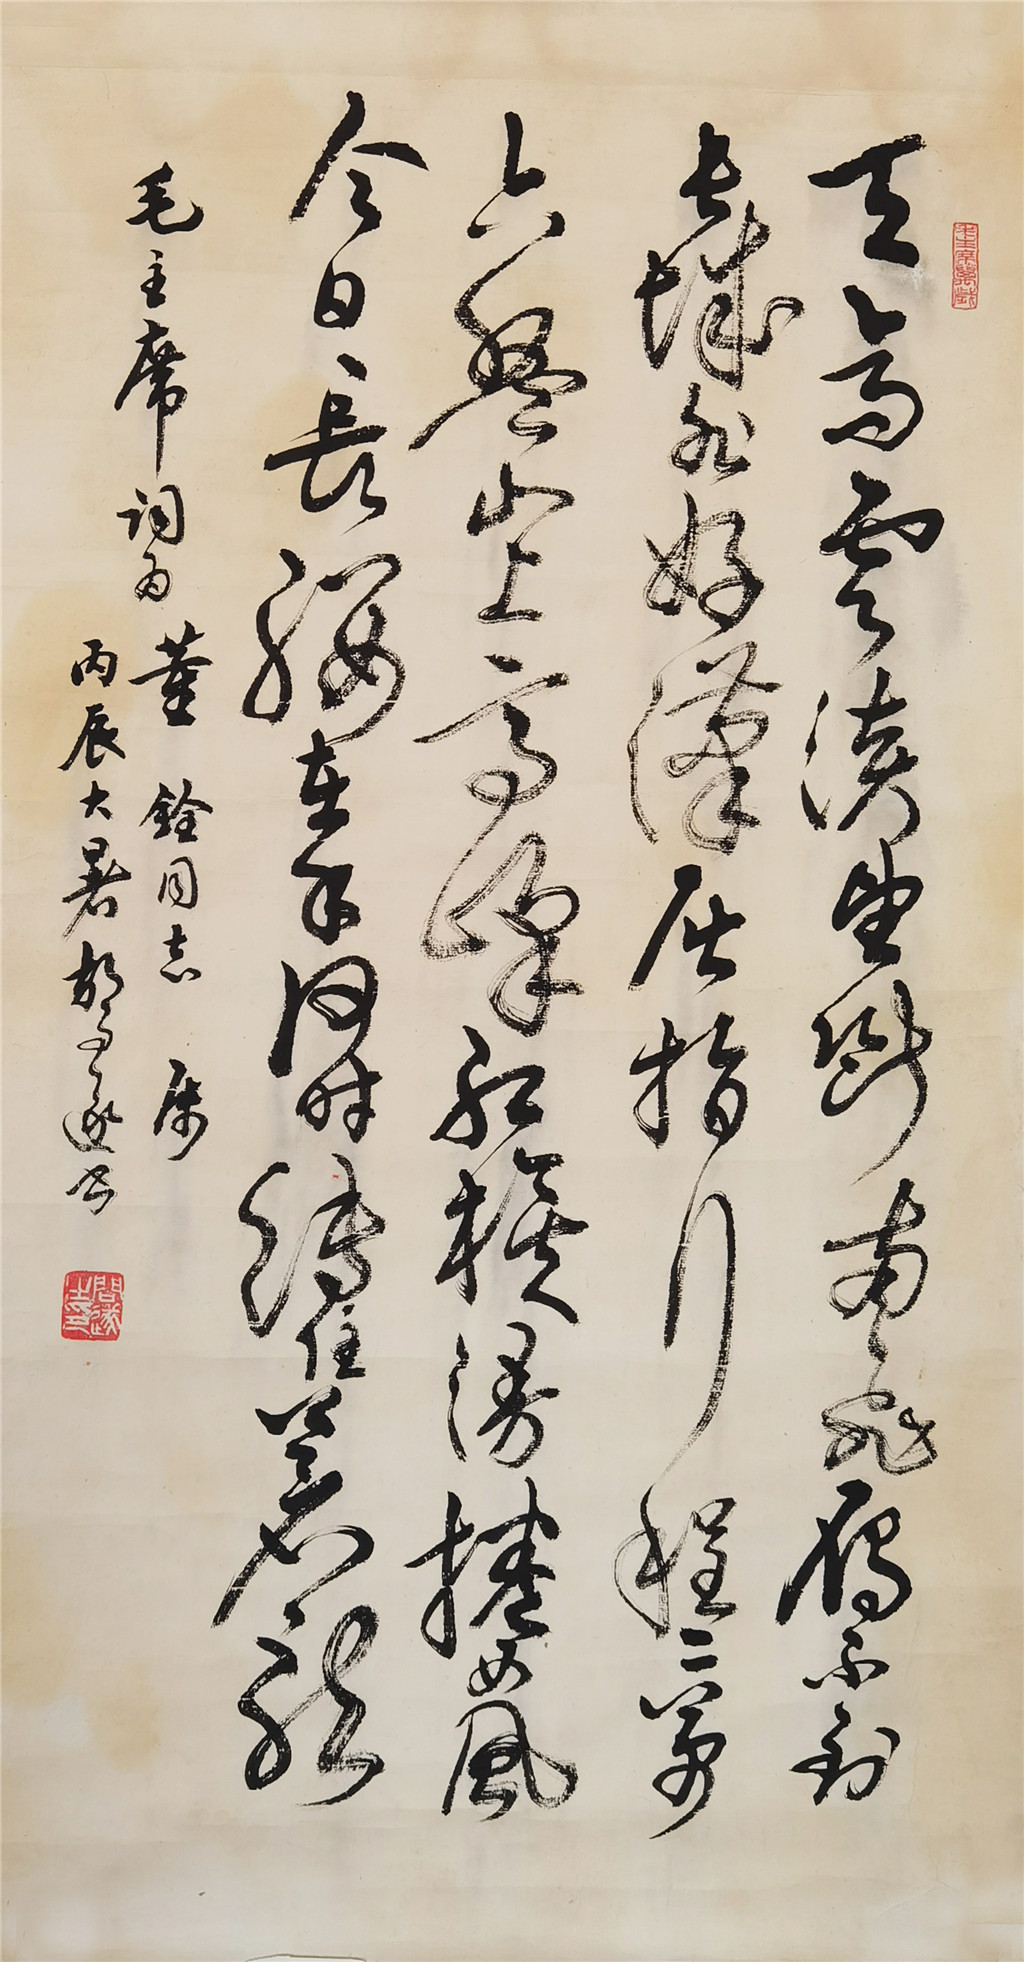 毛主席萬歲
天高雲淡望斷南飛雁不到
長城非好漢屈指行程二萬
六盤山上高峰紅旗漫捲西風
今日長纓在手何時縛住蒼龍
毛主席詞為董銓同志 屬
丙辰大暑胡問遂書
問遂